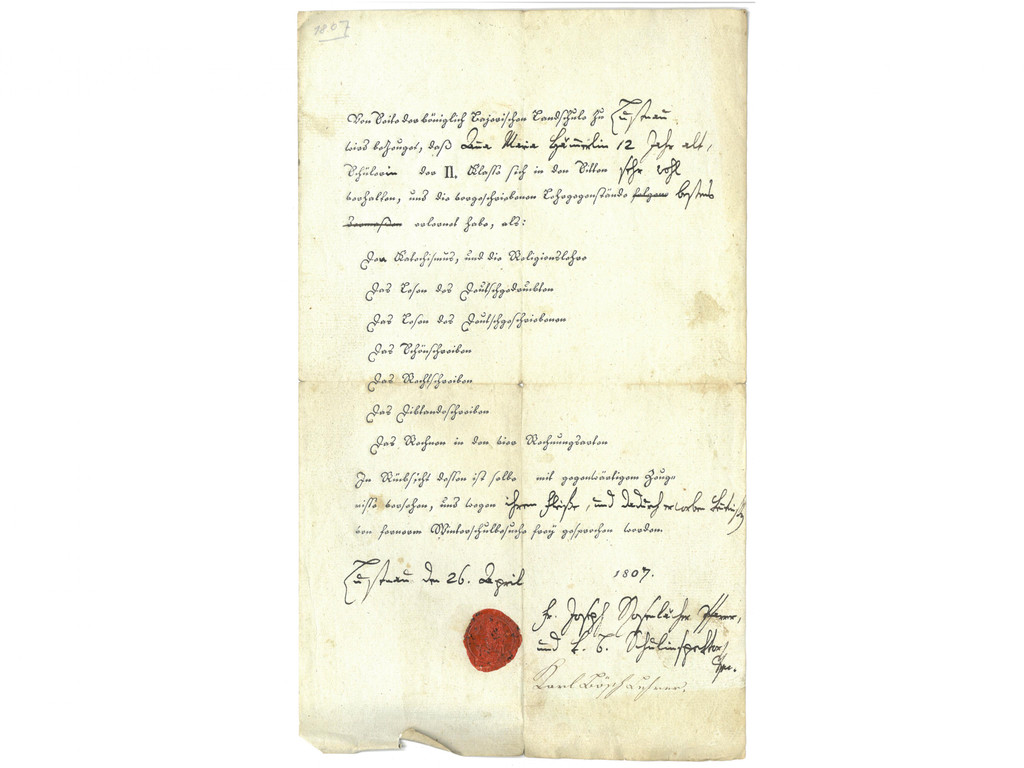 1807
Von Seite der königlich Bajerischen Landschule zu Lustnau
wird bezeuget, daß Anna Maria Hämmerlin 12 Jahr alt,
Schülerin der II. Klasse sich in den Sitten sehr wohl
verhalten, und die vorgeschriebenen Lehrgegenstände folgen bestens
dermaßen erlernet habe, als:
Den Katechismus, und die Religionslehre
Das Lesen des Deutschgedruckten
Das Lesen des Deutschgeschriebenen
Das Schönschreiben
Das Rechtschreiben
Das Diktandoschreiben
Das Rechnen in den vier Rechnungsarten
In Rücksicht dessen ist selbe mit gegenwärtigem Zeug-
nisse versehen, und wegen ihrem Fleiße, und dadurch erworben
von fernerm Winterschulbesuche frey gesprochen worden.
Lustnau den 26. April 1807.
Fr. Joseph Rosenlächer Pfarrer,
und k. b. Schulinspektor
Karl Bösch Lehrer.